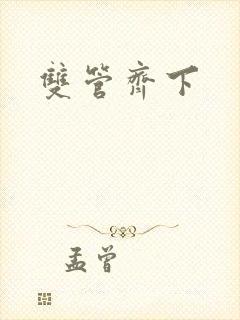 雙管齊下
孟曾